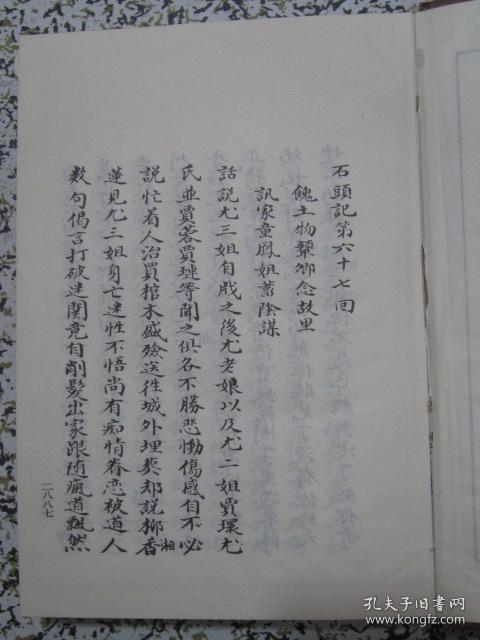 石頭記第六十七回
餽土物顰卿念故里
訊家童鳳姐蓄陰謀
話說尤三姐自戕之後尤老娘以及尤二姐賈環尤
氏並賈蓉賈璉等聞之俱各不勝悲慟傷感自不必
說忙着人治買棺木盛殮送往城外埋葬却說柳香湘
蓮見尤三姐身亡迷性不悟尚有痴情眷戀被道人
数句偈言打破迷関竟自削髮出家跟随瘋道飄然
二八八七
孔夫子旧书网
www.kongfz.com